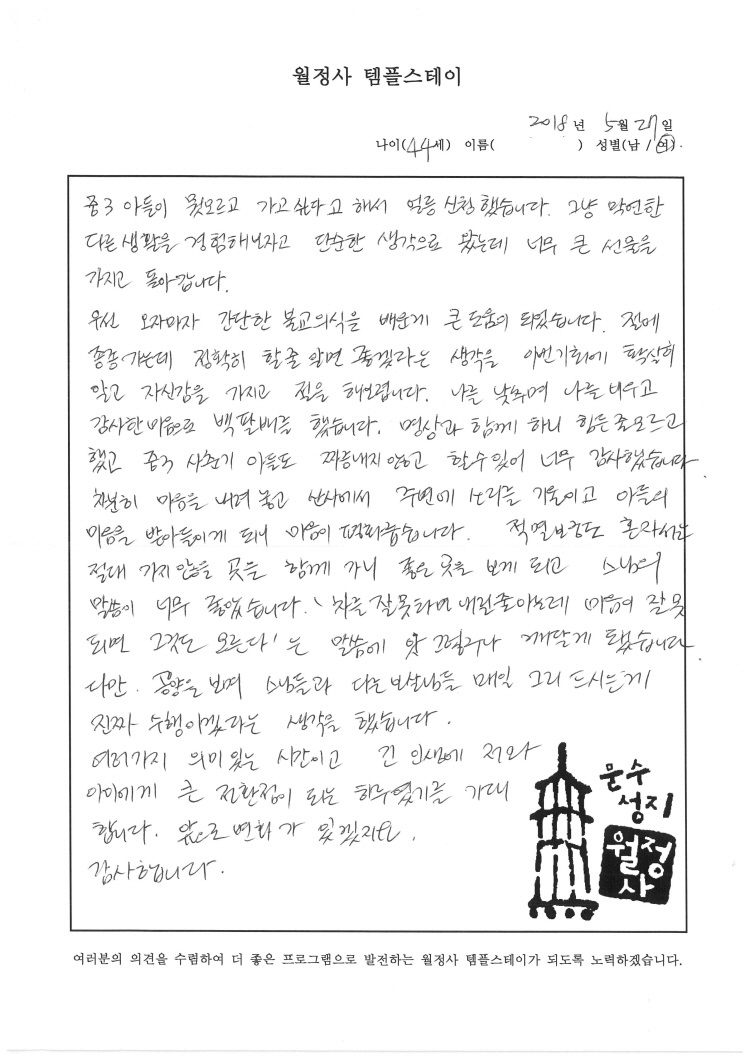 월정사 템플스테이
2018년 5월 27일
나이(44세) 이름( ) 성별(남 / 여).
중3 아들이 뭣모르고 가고싶다고 해서 얼릉 신청했습니다. 그냥 막연한
다른생활을 경험해보자고 단순한 생각으로 왔는데 너무 큰 선물을
가지고 돌아갑니다.
우선 오자마자 간단한 불교의식을 배운게 큰 도움이 되었습니다. 절에
종종가는데 정확히 할줄 알면 좋겠다라는 생각을 이번기회에 확실히
알고 자신감을 가지고 절을 해보렵니다. 나를 낮추며 나를 비우고
감사한마음으로 백팔배를 했습니다. 명상과 함께 하니 힘든줄모르고
했고 중3 사춘기 아들도 짜증내지않고 할수있어 너무 감사했습니다
차분히 마음을 내려놓고 산사에서 주변에 소리를 기울이고 아들의
마음을 받아들이게 되니 마음이 평화롭습니다. 적멸보궁도 혼자서는
절대 가지않을 곳을 함께 가니 좋은 곳을 보게 되고 스님의
말씀이 너무 좋았습니다. '차를 잘못타면 내릴줄아는데 마음이 잘못
되면 그것도 모른다' 는 말씀에 앗 그렇구나 깨닫게 됐습니다
다만. 공양을 보며 스님들과 다른 보살님들 매일 그리 드시는게
진짜 수행이겠다라는 생각을 했습니다.
여러가지 의미있는 시간이고 긴 인생에 저와
아이에게 큰 전환점이 되는 하루였기를 기대
합니다. 앞으로 변화가 있겠지요.
감사합니다.
문수
성지
월정
사
여러분의 의견을 수렴하여 더 좋은 프로그램으로 발전하는 월정사 템플스테이가 되도록 노력하겠습니다.